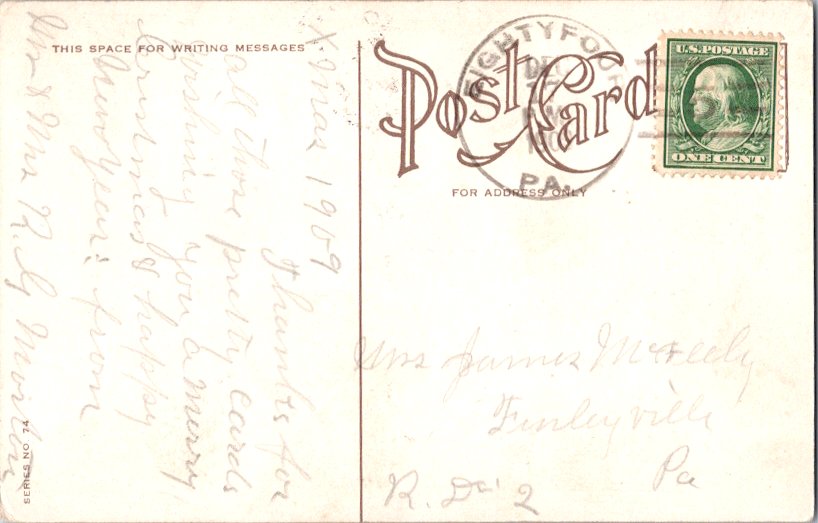 THIS SPACE FOR WRITING MESSAGES
Post Card
FOR ADDRESS ONLY
EIGHTYFOUR
DEC
PA.
U.S. POSTAGE
ONE CENT
Xmas 1909
Thanks for
all those pretty cards
wishing you a merry
Cristmas & happy
New year: from
Mr & Mrs R. G.
Mrs James McNeely
Finleyville
Pa
R. D. 2
SERIES NO. 74